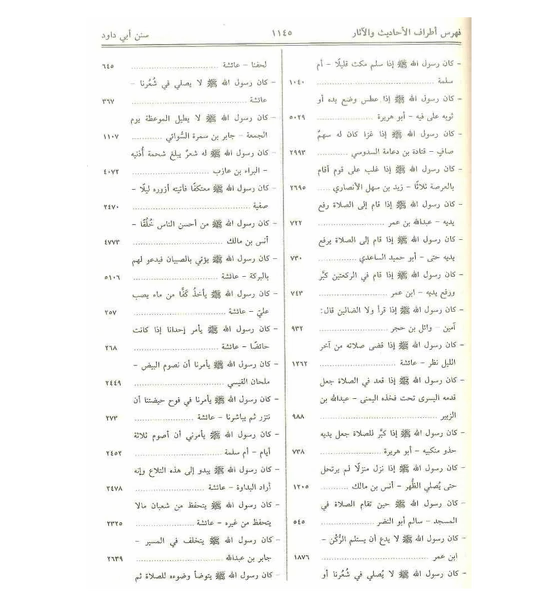 فهرس أطراف الأحاديث والآثار ١١٤٥ سنن أبي داود
- كان رسول الله ﷺ إذا سلم مكث قليلًا - أم
سلمة ........ ١٠٤٠
- كان رسول الله ﷺ إذا عطس وضع يده أو
ثوبه على فيه - أبو هريرة ........ ٥٠٢٩
- كان رسول الله ﷺ إذا غزا كان له سهمٌ
صافٍ - قتادة بن دعامة السدوسي ........ ٢٩٩٣
- كان رسول الله ﷺ إذا غلب على قوم أقام
بالعرصة ثلاثًا - زيد بن سهل الأنصاري ........ ٢٦٩٥
- كان رسول الله ﷺ إذا قام إلى الصلاة رفع
يديه - عبدالله بن عمر ........ ٧٢٢
- كان رسول الله ﷺ إذا قام إلى الصلاة يرفع
يديه حتى - أبو حميد الساعدي ........ ٧٣٠
- كان رسول الله ﷺ إذا قام في الركعتين كبَّر
ورفع يديه - ابن عمر ........ ٧٤٣
- كان رسول الله ﷺ إذا قرأ ولا الضالين قال:
آمين - وائل بن حجر ........ ٩٣٢
- كان رسول الله ﷺ إذا قضى صلاته من آخر
الليل نظر - عائشة ........ ١٢٦٢
- كان رسول الله ﷺ إذا قعد في الصلاة جعل
قدمه اليسرى تحت فخذه اليمنى - عبدالله بن
الزبير ........ ٩٨٨
- كان رسول الله ﷺ إذا كبَّر للصلاة جعل يديه
حذو منكبيه - أبو هريرة ........ ٧٣٨
- كان رسول الله ﷺ إذا نزل منزلًا لم يرتحل
حتى يُصلي الظُّهر - أنس بن مالك ........ ١٢٠٥
- كان رسول الله ﷺ حين تقام الصلاة في
المسجد - سالم أبو النضر ........ ٥٤٥
- كان رسول الله ﷺ لا يدع أن يستلم الرُّكْن -
ابن عمر ........ ١٨٧٦
- كان رسول الله ﷺ لا يُصلي في شُعُرنا أو
لحفنا - عائشة ........ ٦٤٥
- كان رسول الله ﷺ لا يصلي في شُعُرنا -
عائشة ........ ٣٦٧
- كان رسول الله ﷺ لا يطيل الموعظة يوم
الجمعة - جابر بن سمرة السُّوائي ........ ١١٠٧
- كان رسول الله ﷺ له شعرٌ يبلغ شحمة أُذنيه
- البراء بن عازب ........ ٤٠٧٢
- كان رسول الله ﷺ معتكفًا فأتيته أزوره ليلًا -
صفية ........ ٢٤٧٠
- كان رسول الله ﷺ من أحسن الناس خُلُقًا -
أنس بن مالك ........ ٤٧٧٣
- كان رسول الله ﷺ يؤتي بالصبيان فيدعو لهم
بالبركة - عائشة ........ ٥١٠٦
- كان رسول الله ﷺ يأخذُ كفًّا من ماء يصب
عليَّ - عائشة ........ ٢٥٧
- كان رسول الله ﷺ يأمر إحدانا إذا كانت
حائضًا - عائشة ........ ٢٦٨
- كان رسول الله ﷺ يأمرنا أن نصوم البيض -
ملحان القيسي ........ ٢٤٤٩
- كان رسول الله ﷺ يأمرنا في فوح حيضتنا أن
نتزر ثم يباشرنا - عائشة ........ ٢٧٣
- كان رسول الله ﷺ يأمرني أن أصوم ثلاثة
أيام - أم سلمة ........ ٢٤٥٢
- كان رسول الله ﷺ يبدو إلى هذه التلاع وإنه
أراد البداوة - عائشة ........ ٢٤٧٨
- كان رسول الله ﷺ يتحفظ من شعبان مالا
يتحفظ من غيره - عائشة ........ ٢٣٢٥
- كان رسول الله ﷺ يتخلف في المسير -
جابر بن عبدالله ........ ٢٦٣٩
- كان رسول الله ﷺ يتوضأ وضوءه للصلاة ثم